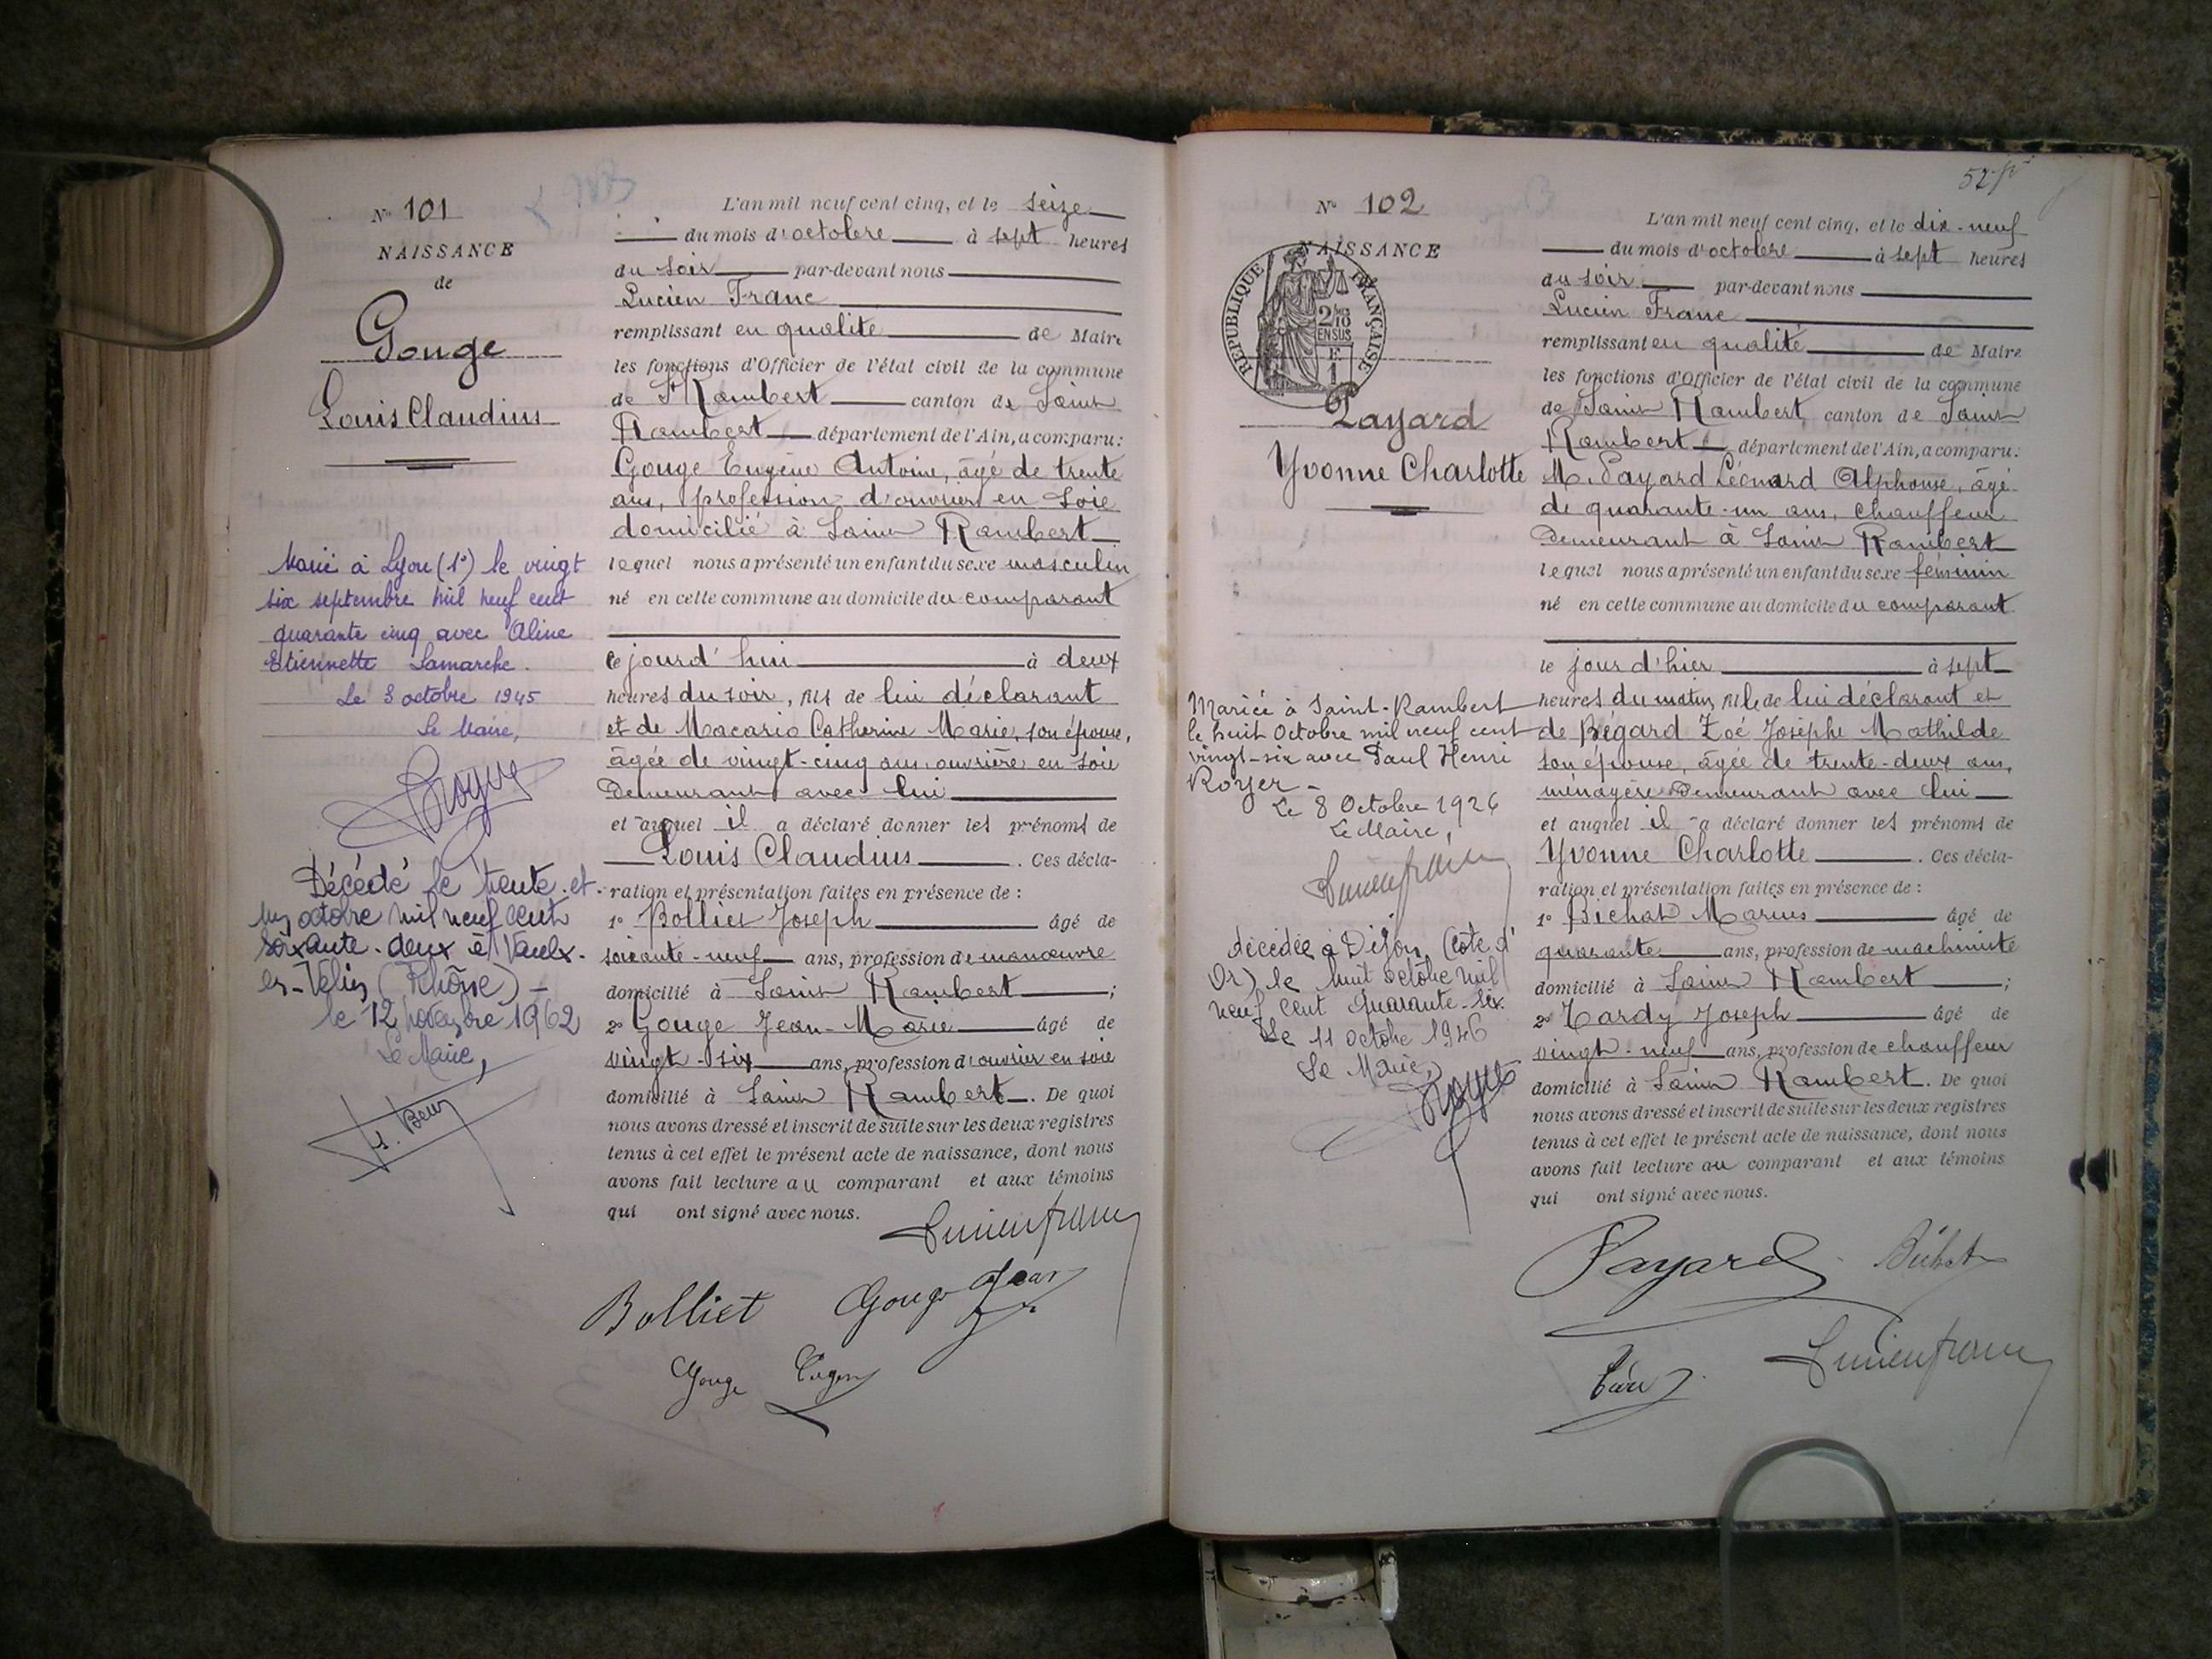 N° 101
NAISSANCE
de
Gouge
Louis Claudius
Marié à Lyon (1e) le vingt
six septembre mil neuf cent
quarante cinq avec Aline
Etiennette Lamarche.
Le 3 octobre 1945
Le Maire,
Décédé le trente-et-
un octobre mil neuf cent
soixante-deux à Vaulx-
en-Velin (Rhône) —
le 12 novembre 1962
Le Maire,
L'an mil neuf cent cinq, et le seize
du mois d'octobre à sept heures
du soir par-devant nous
Lucien Franc
remplissant en qualité de Maire
les fonctions d'Officier de l'état civil de la commune
de St Rambert canton de Saint
Rambert département de l'Ain, a comparu :
Gouge Eugène Antoine, âgé de trente
ans, profession d'ouvrier en soie
domicilié à Saint Rambert
lequel nous a présenté un enfant du sexe masculin
né en cette commune au domicile du comparant
ce jourd'hui à deux
heures du soir, fils de lui déclarant
et de Macario Catherine Marie, son épouse,
âgée de vingt-cinq ans, ouvrière en soie
Demeurant avec lui
et auquel il a déclaré donner les prénoms de
Louis Claudius. Ces décla-
ration et présentation faites en présence de :
1° Bolliet Joseph âgé de
soixante-neuf ans, profession de manœuvre
domicilié à Saint Rambert ;
2° Gouge Jean-Marie âgé de
vingt-six ans, profession d'ouvrier en soie
domicilié à Saint Rambert. De quoi
nous avons dressé et inscrit de suite sur les deux registres
tenus à cet effet le présent acte de naissance, dont nous
avons fait lecture au comparant et aux témoins
qui ont signé avec nous.
Lucien franc
Bolliet Gouge Jean
Gouge Eugène
N° 102
NAISSANCE
REPUBLIQUE FRANÇAISE
2/10 EN SUS
Payard
Yvonne Charlotte
Mariée à Saint-Rambert
le huit Octobre mil neuf cent
vingt-six avec Paul Henri
Royer —
Le 8 Octobre 1926
Le Maire,
Lucien franc
décédée à Dijon (Côte d'
Or) le huit octobre mil
neuf cent quarante-six.
Le 11 octobre 1946
Le Maire,
L'an mil neuf cent cinq, et le dix-neuf
du mois d'octobre à sept heures
du soir par-devant nous
Lucien Franc
remplissant en qualité de Maire
les fonctions d'Officier de l'état civil de la commune
de Saint Rambert, canton de Saint
Rambert département de l'Ain, a comparu :
M. Payard Léonard Alphonse, âgé
de quarante-un ans, chauffeur
Demeurant à Saint Rambert
lequel nous a présenté un enfant du sexe féminin
né en cette commune au domicile du comparant
le jour d'hier à sept
heures du matin, fille de lui déclarant et
de Bégard Zoé Josèphe Mathilde
son épouse, âgée de trente-deux ans,
ménagère Demeurant avec lui
et auquel il a déclaré donner les prénoms de
Yvonne Charlotte. Ces décla-
ration et présentation faites en présence de :
1° Bichat Marius âgé de
quarante ans, profession de machiniste
domicilié à Saint Rambert ;
2° Tardy Joseph âgé de
vingt-neuf ans, profession de chauffeur
domicilié à Saint Rambert. De quoi
nous avons dressé et inscrit de suite sur les deux registres
tenus à cet effet le présent acte de naissance, dont nous
avons fait lecture au comparant et aux témoins
qui ont signé avec nous.
Payard Bichat
Lucien franc